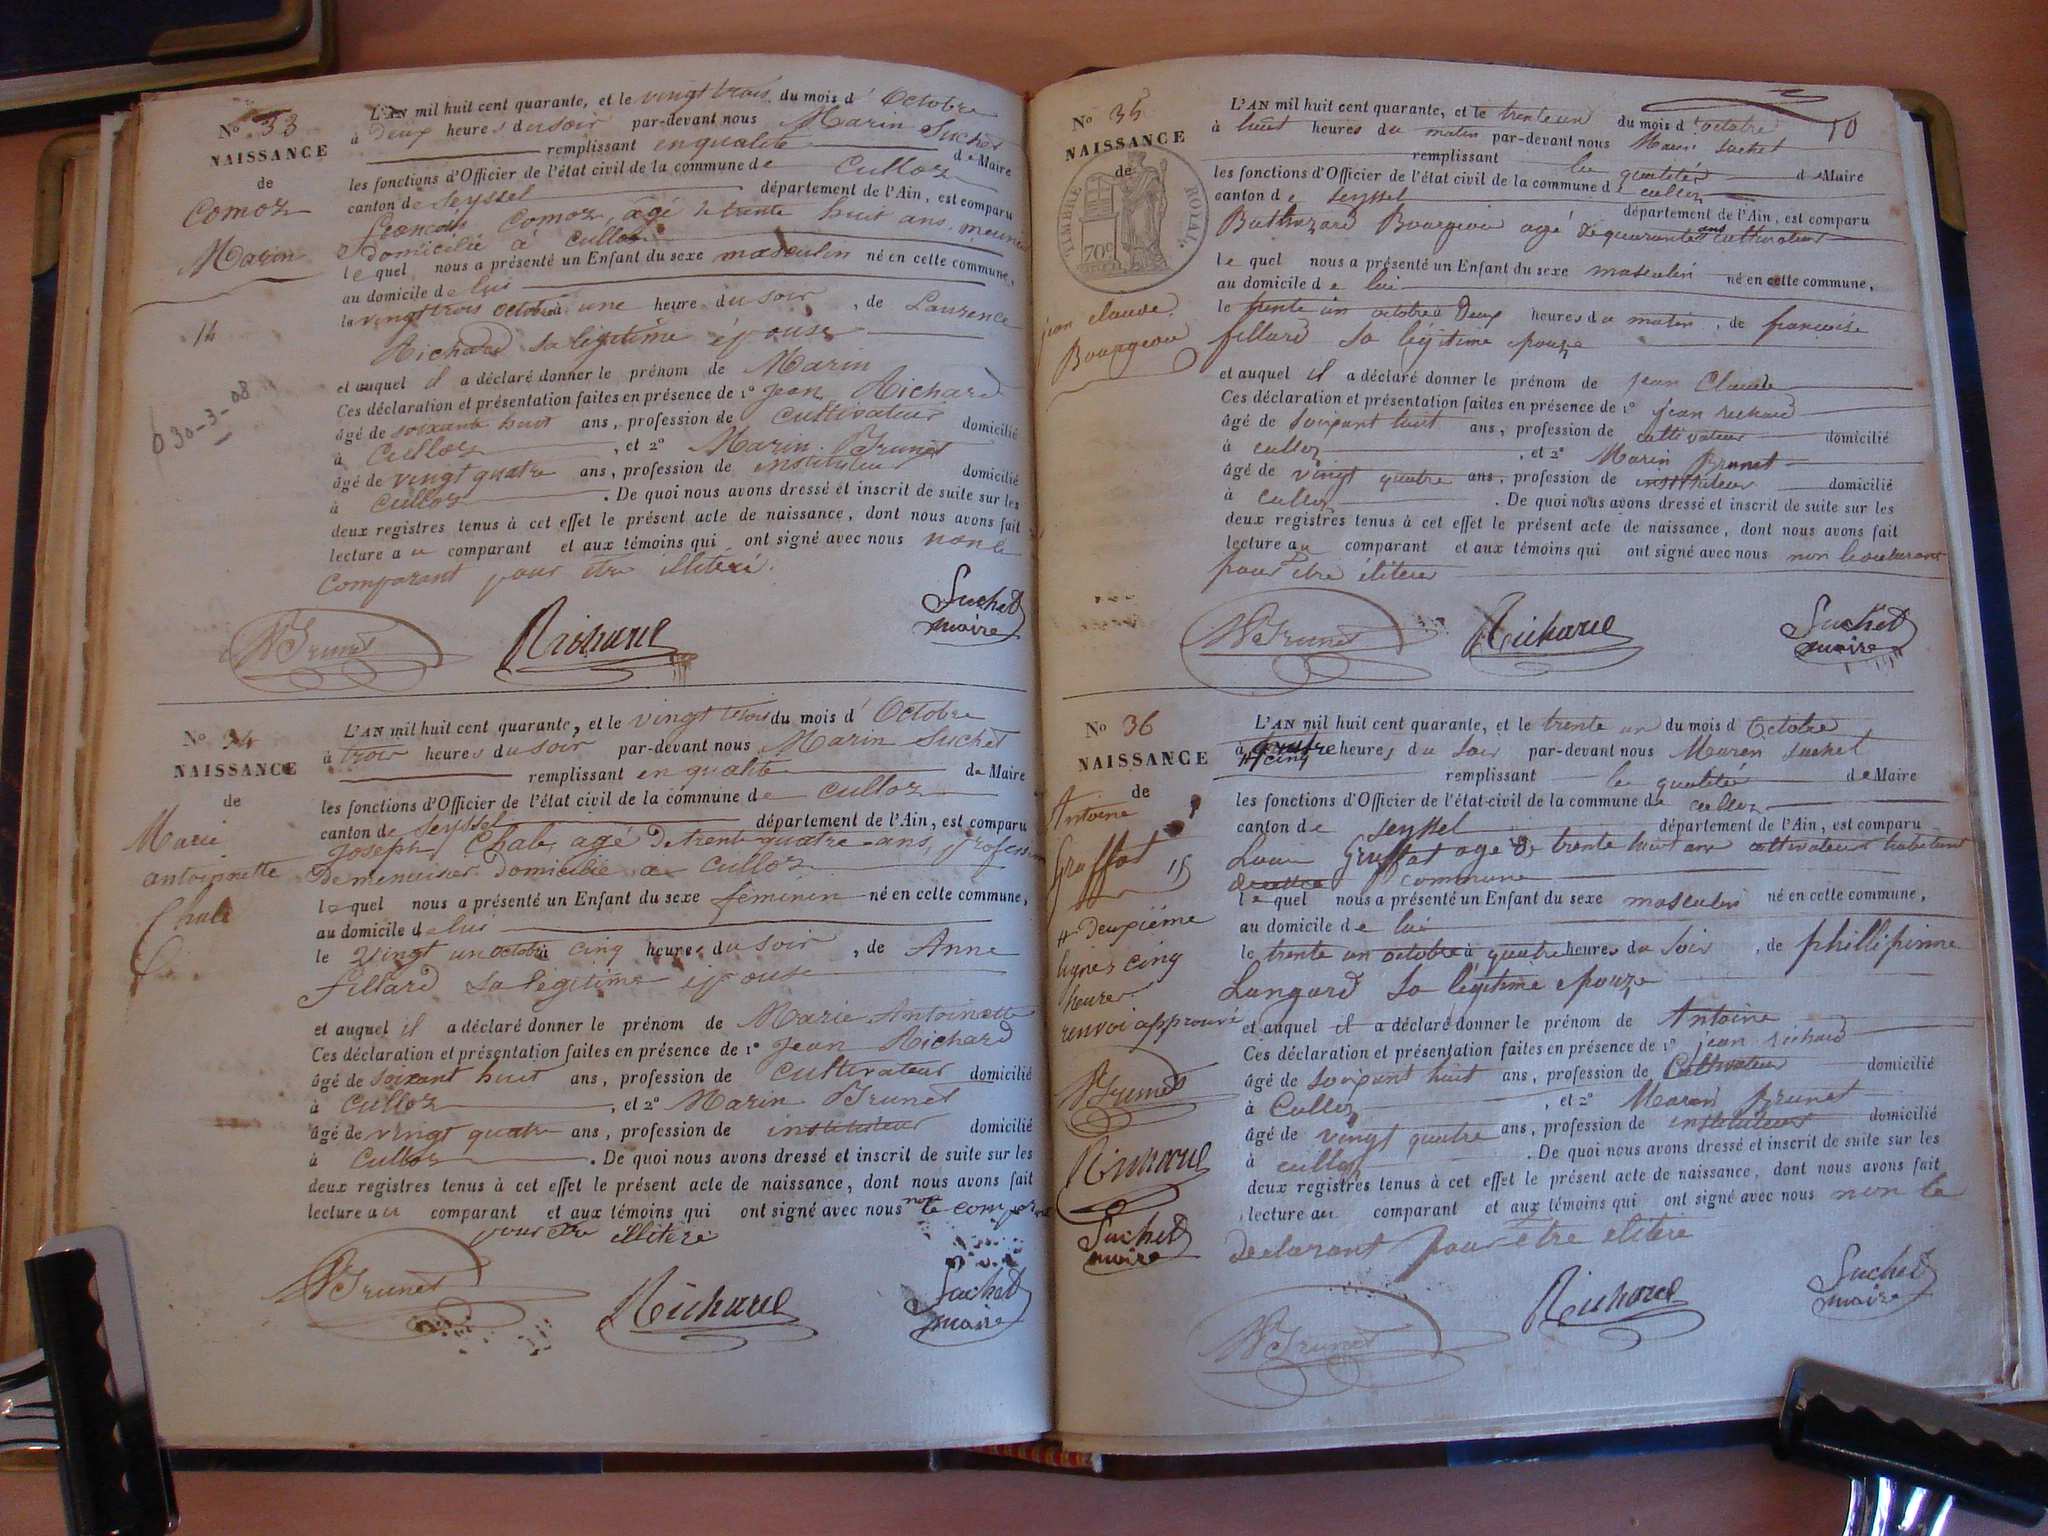 No 33
NAISSANCE
de
Comoz
Marin
14
030-3-08
L'AN mil huit cent quarante, et le vingt trois du mois d' Octobre
à Deux heures du soir par-devant nous Marin Suchet
remplissant en qualité de Maire
les fonctions d'Officier de l'état civil de la commune de Culloz
canton de Seyssel département de l'Ain, est comparu
françois Comoz, âgé de trente huit ans, meunier
Domicilié à Culloz
le quel nous a présenté un Enfant du sexe masculin né en cette commune,
au domicile de lui
le vingt trois octobre à une heure du soir, de Laurence
Richard sa légitime épouse
et auquel il a déclaré donner le prénom de Marin
Ces déclaration et présentation faites en présence de 1° Jean Richard
âgé de soixante huit ans, profession de cultivateur domicilié
à Culloz, et 2° Marin Brunet
âgé de vingt quatre ans, profession de instituteur domicilié
à Culloz. De quoi nous avons dressé et inscrit de suite sur les
deux registres tenus à cet effet le présent acte de naissance, dont nous avons fait
lecture au comparant et aux témoins qui ont signé avec nous non le
comparant pour être illiteré.
Brunet Richard Suchet
maire
No 34
NAISSANCE
de
Marie
antoinnette
Chale
L'AN mil huit cent quarante, et le vingt trois du mois d' Octobre
à trois heures du soir par-devant nous Marin Suchet
remplissant en qualité de Maire
les fonctions d'Officier de l'état civil de la commune de Culloz
canton de Seyssel département de l'Ain, est comparu
Joseph Chale, agé De trente quatre ans, profession
De menuisier Domicilié à Culloz
le quel nous a présenté un Enfant du sexe féminin né en cette commune,
au domicile de lui
le vingt un octobre à cinq heures du soir, de Anne
fillard sa légitime épouse
et auquel il a déclaré donner le prénom de Marie Antoinette
Ces déclaration et présentation faites en présence de 1° Jean Richard
âgé de soixant huit ans, profession de cultivateur domicilié
à Culloz, et 2° Marin Brunet
âgé de vingt quatre ans, profession de instituteur domicilié
à Culloz. De quoi nous avons dressé et inscrit de suite sur les
deux registres tenus à cet effet le présent acte de naissance, dont nous avons fait
lecture au comparant et aux témoins qui ont signé avec nous non le comparant
pour être illiteré
Brunet Richard Suchet
maire
50
No 35
NAISSANCE
de
TIMBRE ROYAL
70c
jean claude
Bourgeou
L'AN mil huit cent quarante, et le trente un du mois d' octobre
à huit heures du matin par-devant nous Marin Suchet
remplissant la qualité de Maire
les fonctions d'Officier de l'état civil de la commune de culloz
canton de Seyssel département de l'Ain, est comparu
Balthazard Bourgeou agé de quarante ans cultivateur
le quel nous a présenté un Enfant du sexe masculin né en cette commune,
au domicile de lui
le trente un octobre à Deux heures du matin, de françoise
fillard sa légitime epouze
et auquel il a déclaré donner le prénom de jean Claude
Ces déclaration et présentation faites en présence de 1° jean richard
âgé de soixant huit ans, profession de cultivateur domicilié
à culloz, et 2° Marin Brunet
âgé de vingt quatre ans, profession de instituteur domicilié
à culloz. De quoi nous avons dressé et inscrit de suite sur les
deux registres tenus à cet effet le présent acte de naissance, dont nous avons fait
lecture au comparant et aux témoins qui ont signé avec nous non le
pour être
Brunet Richard Suchet
maire
No 36
NAISSANCE
de
Antoine
Gruffat
15
# Deuxiéme
lignes cinq
heures
renvoi approuvé
Brunet
Richard
Suchet
maire
L'AN mil huit cent quarante, et le trente un du mois d octobre
à quatre heures du soir par-devant nous Maren Suchet
# cinq
remplissant la qualité de Maire
les fonctions d'Officier de l'état-civil de la commune de culloz
canton de Seyssel département de l'Ain, est comparu
Gruffat agé de trente huit ans cultivateur habitant
commune
le quel nous a présenté un Enfant du sexe masculin né en cette commune,
au domicile de lui
le trente un octobre à quatre heures du soir, de phillipinne
Langard sa légitime epouze
et auquel il a déclaré donner le prénom de Antoine
Ces déclaration et présentation faites en présence de 1° jean richard
âgé de soixant huit ans, profession de Cultivateur domicilié
à Culloz, et 2° Maren Brunet
âgé de vingt quatre ans, profession de instituteur domicilié
à culloz. De quoi nous avons dressé et inscrit de suite sur les
deux registres tenus à cet effet le présent acte de naissance, dont nous avons fait
lecture au comparant et aux témoins qui ont signé avec nous non le
declarant pour être
Brunet Richard Suchet
maire